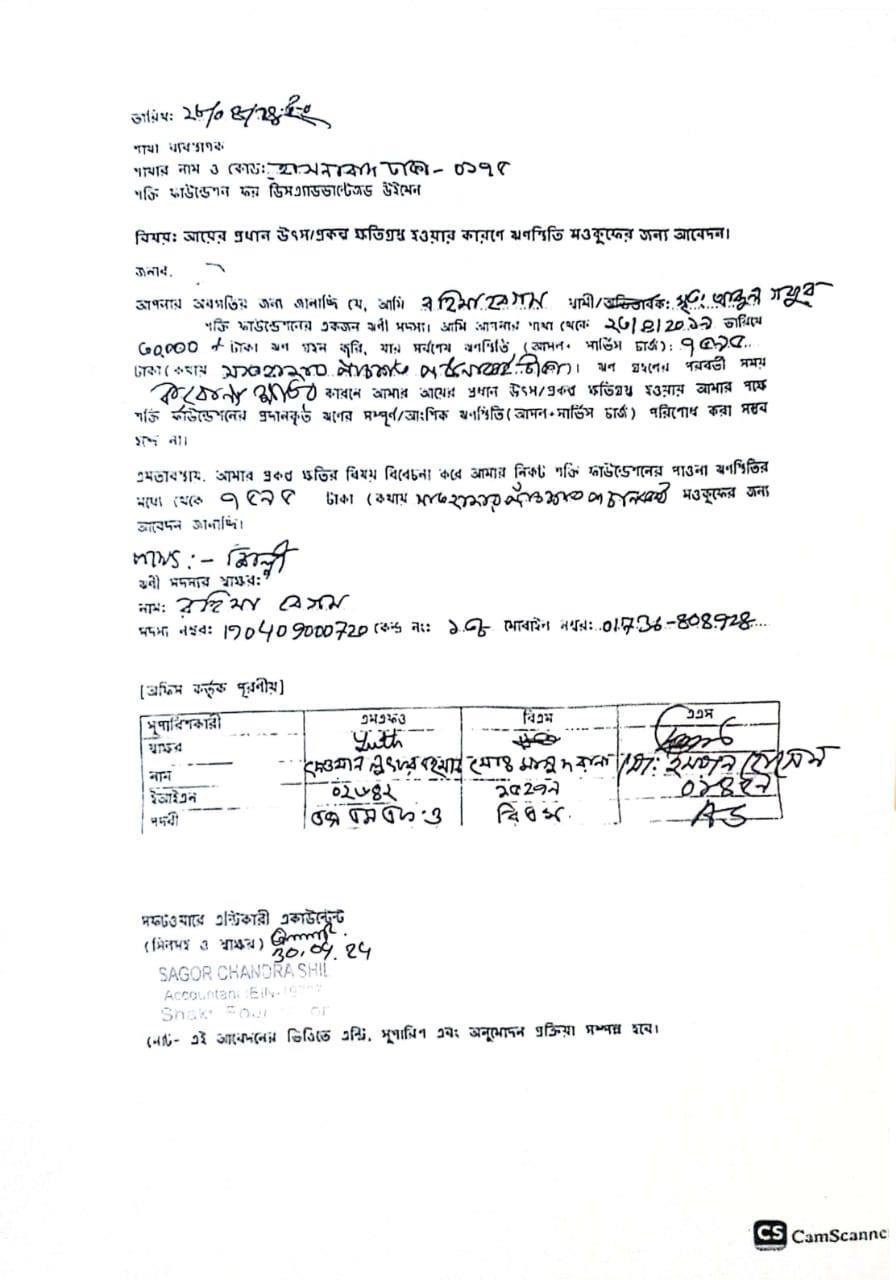 তারিখ: ২৮/০৪/২৪ ইং
শাখা ব্যবস্থাপক
শাখার নাম ও কোড: হাসনাবাদ ঢাকা - ০১৭৫
শক্তি ফাউন্ডেশন ফর ডিসএ্যাডভান্টেজড উইমেন
বিষয়: আয়ের প্রধান উৎস/প্রকল্প ক্ষতিগ্রস্থ হওয়ার কারণে ঋণস্থিতি মওকুফের জন্য আবেদন।
জনাব,
আপনার অবগতির জন্য জানাচ্ছি যে, আমি রহিমা বেগম স্বামী/অভিভাবক: মৃত: আব্দুল গফুর
শক্তি ফাউন্ডেশনের একজন ঋণী সদস্য। আমি আপনার শাখা থেকে ২৩/৪/২০১৯ তারিখে
৩০,০০০ টাকা ঋণ গ্রহন করি, যার সর্বশেষ ঋণস্থিতি (আসল+ সার্ভিস চার্জ): ৭৫৯৫
টাকা (কথায় সাতহাজার পাঁচশত পঁচানব্বই টাকা)। ঋণ গ্রহণের পরবর্তী সময়
করোনা কারনে আমার আয়ের প্রধান উৎস/প্রকল্প ক্ষতিগ্রস্থ হওয়ায় আমার পক্ষে
শক্তি ফাউন্ডেশনের প্রদানকৃত ঋণের সম্পূর্ণ/আংশিক ঋণস্থিতি (আসল+সার্ভিস চার্জ) পরিশোধ করা সম্ভব
হচ্ছে না।
এমতাবস্থায়, আমার প্রকল্প ক্ষতির বিষয় বিবেচনা করে আমার নিকট শক্তি ফাউন্ডেশনের পাওনা ঋণস্থিতির
মধ্যে থেকে ৭৫৯৫ টাকা (কথায় সাতহাজার পাঁচশত পঁচানব্বই মওকুফের জন্য
আবেদন জানাচ্ছি।
ঋণী সদস্যার স্বাক্ষর:
নাম: রহিমা বেগম
সদস্য নম্বর: 190409000720 কেন্দ্র নং: ১৩ মোবাইল নম্বর: 01736-808928
[অফিস কর্তৃক পূরণীয়]
সুপারিশকারী এমএফও বিএম এএস
স্বাক্ষর
নাম দেওয়ান লুৎফর রহমান মোঃ মাসুদ রানা মো: ইমরান হোসেন
ইআইএন ০২৬৪২
পদবী এম এফ ও বিএম AS
সফটওয়্যারে এন্ট্রিকারী একাউন্টেন্ট
(সিলসহ ও স্বাক্ষর)
30.04.24
SAGOR CHANDRA SHIL
Accountant
নোট- এই আবেদনের ভিত্তিতে এন্ট্রি, সুপারিশ এবং অনুমোদন প্রক্রিয়া সম্পন্ন হবে।
CS CamScanne